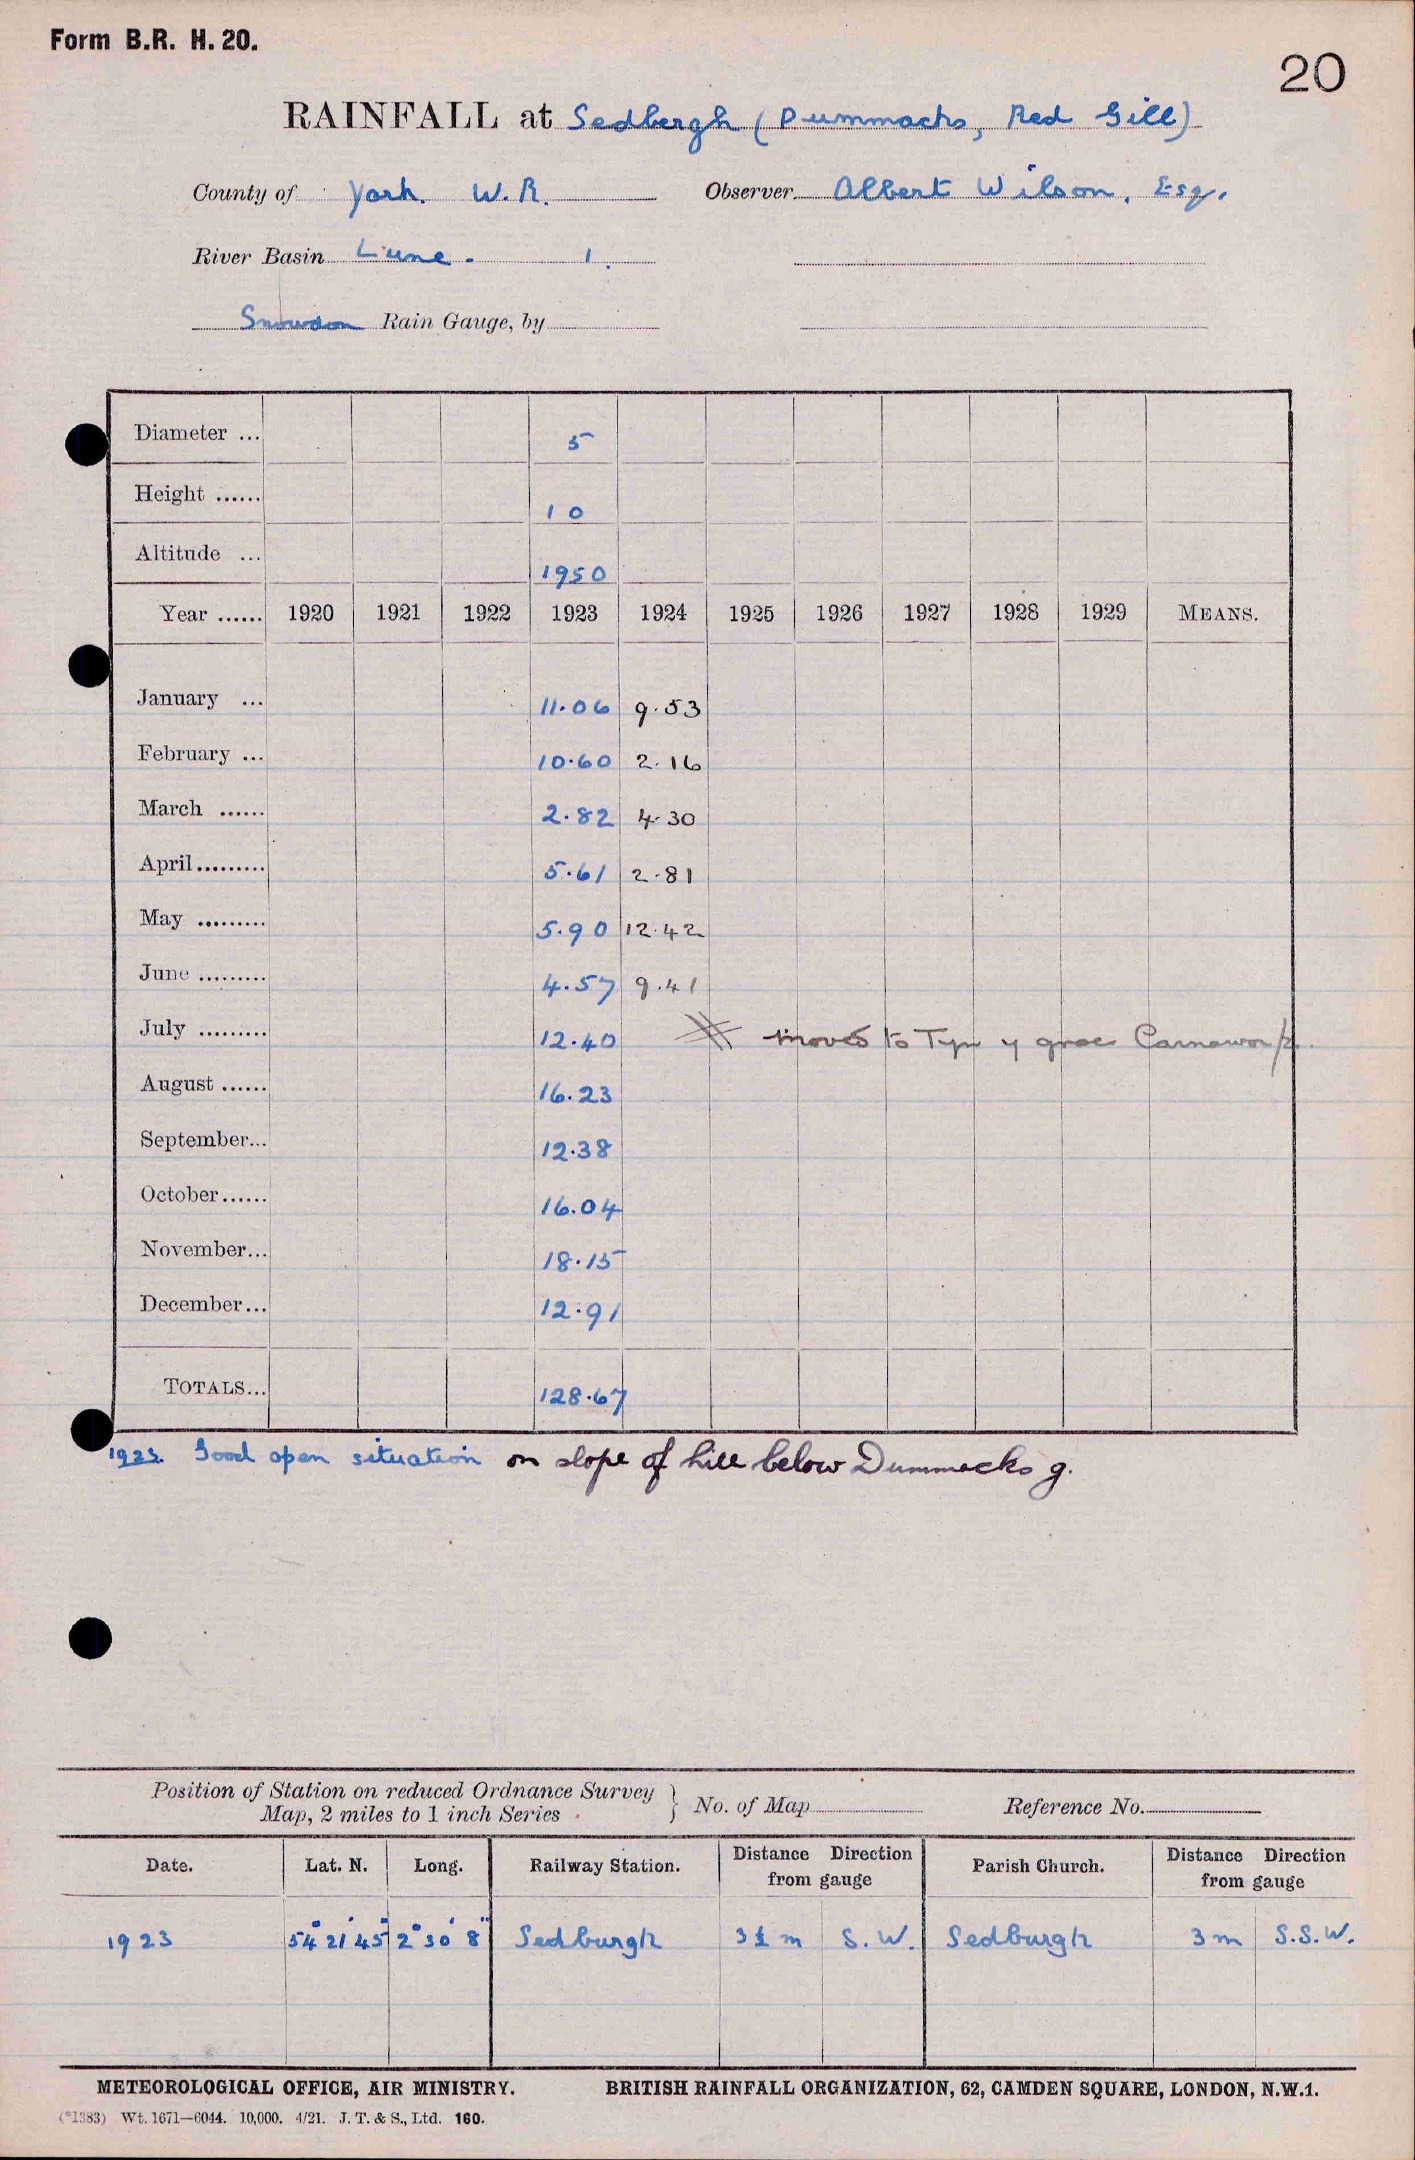 Form B.R. H. 20.
20
RAINFALL at Sedbergh (Dummacks, Red Gill)
County of York. W.R. Observer Albert Wilson, Esq.
River Basin Lune. 1.
Snowdon Rain Gauge, by
Diameter ... 5
Height ...... 10
Altitude ... 1950
Year ...... 1920 1921 1922 1923 1924 1925 1926 1927 1928 1929 MEANS.
January ... 11.06 9.53
February ... 10.60 2.16
March ...... 2.82 4.30
April......... 5.61 2.81
May ......... 5.90 12.42
June ......... 4.57 9.41
July ......... 12.40 moved to Tyn y
August ...... 16.23
September... 12.38
October...... 16.04
November... 18.15
December... 12.91
TOTALS... 128.67
1923. Good open situation on slope of hill below Dummacks g.
Position of Station on reduced Ordnance Survey
Map, 2 miles to 1 inch Series } No. of Map Reference No.
Date. Lat. N. Long. Railway Station. Distance Direction from gauge Parish Church. Distance Direction from gauge
1923 54° 21' 45" 2° 30' 8" Sedburgh 3½ m S.W. Sedburgh 3 m S.S.W.
METEOROLOGICAL OFFICE, AIR MINISTRY. BRITISH RAINFALL ORGANIZATION, 62, CAMDEN SQUARE, LONDON, N.W.1.
(*1383) Wt. 1671—6044. 10,000. 4/21. J. T. & S., Ltd. 160.